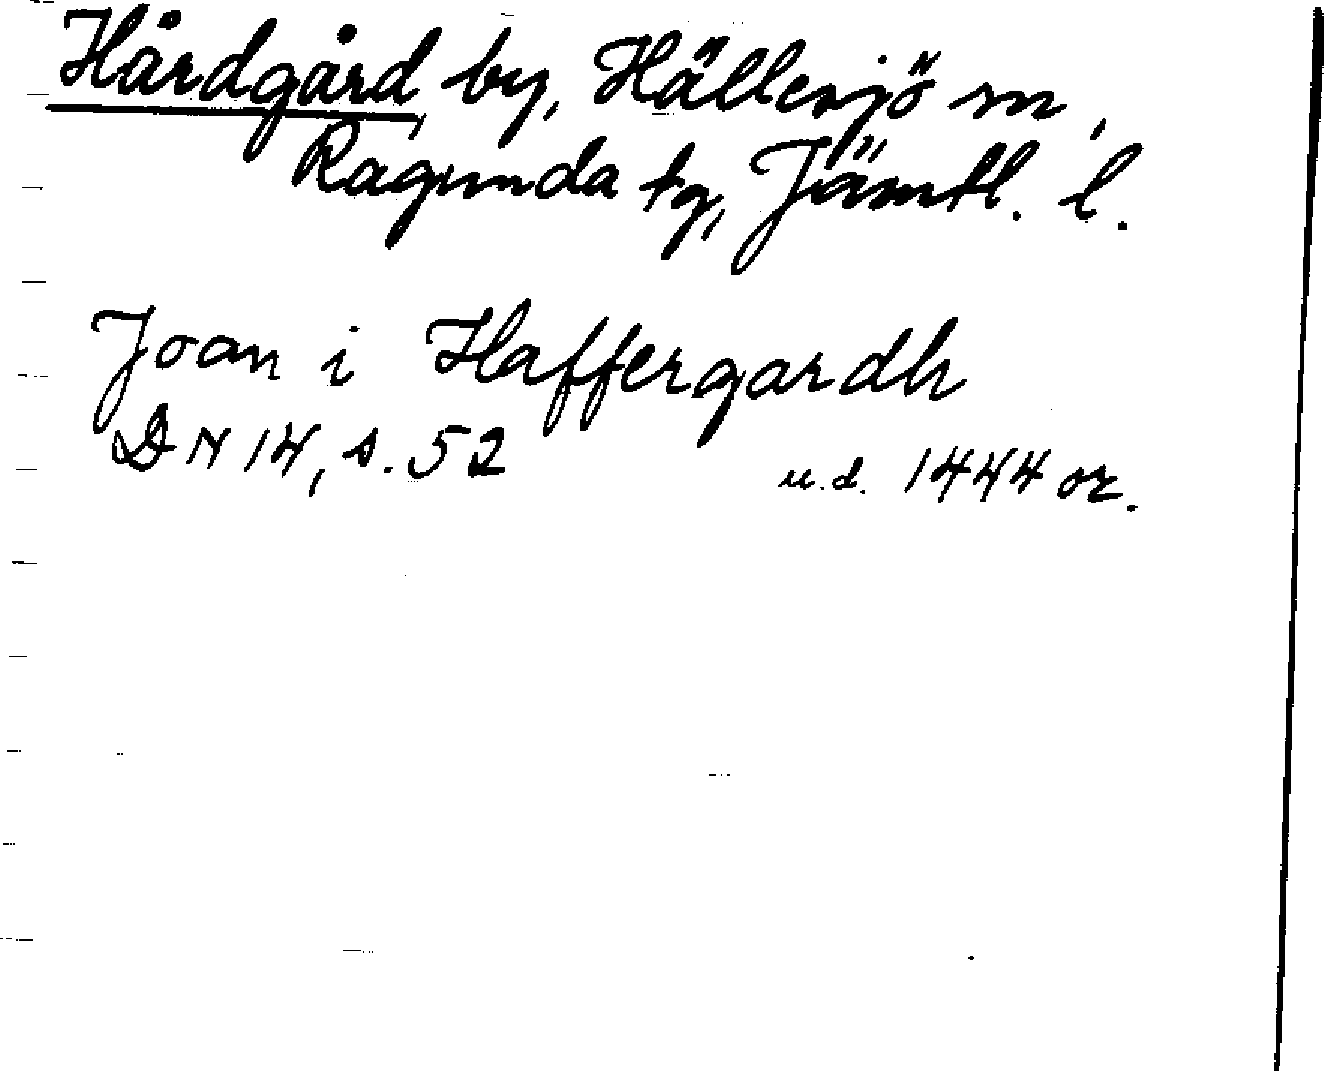 Hårdgård by, Hällesjö sn,
Ragunda tg, Jämtl. l.
Joan i Haffergardh
DN 14, s. 52 u.d. 1444 or.